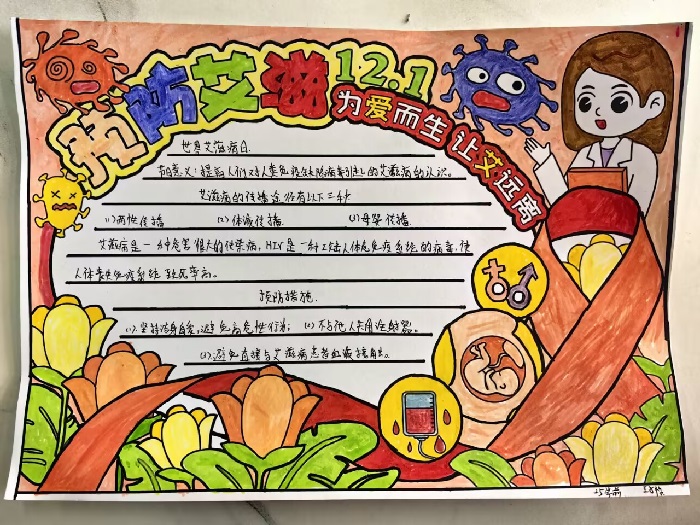 预防艾滋
12.1
为爱而生 让艾远离
世界艾滋病日
节日意义:提高人们对人类免疫缺陷病毒引起的艾滋病的认识。
艾滋病的传播途径有以下三种
(1)两性传播 (2)体液传播 (3)母婴传播
艾滋病是一种危害很大的传染病,HIV是一种攻击人体免疫系统的病毒,使
人体丧失免疫系统 致死率高。
预防措施
(1)、坚持洁身自爱,避免高危性行为; (2)不与他人共用注射器。
(3)避免直接与艾滋病患者血液接触。